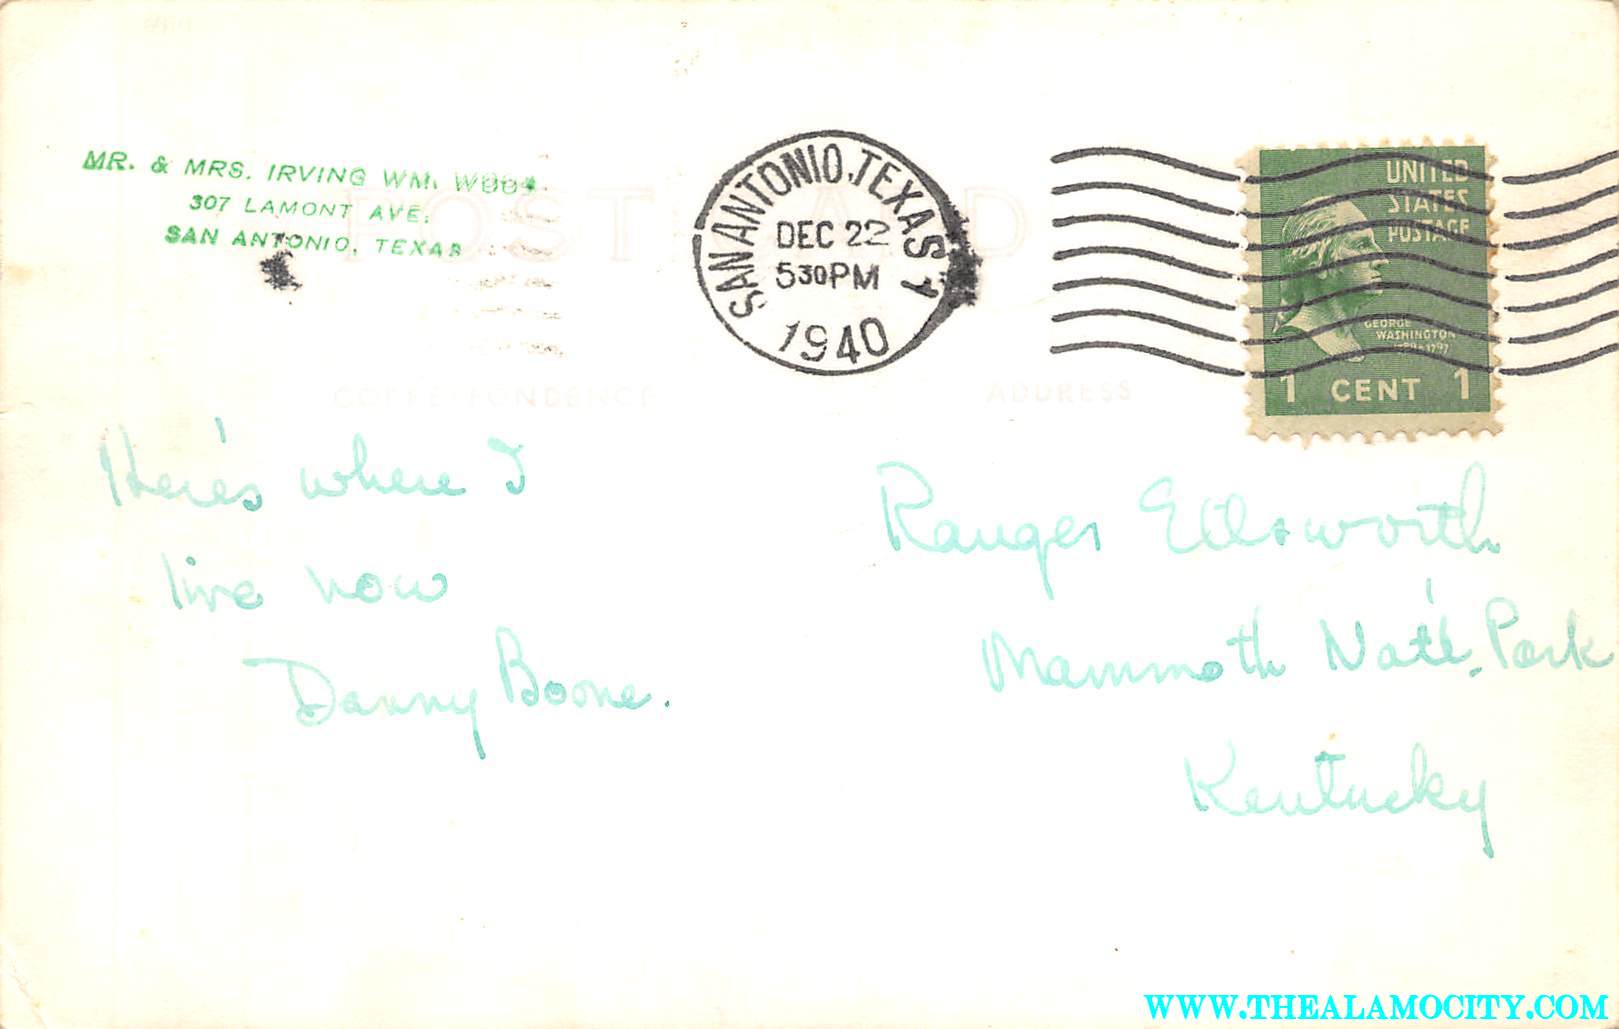 MR. & MRS. IRVING WM.
307 LAMONT AVE.
SAN ANTONIO, TEXAS
POST CARD
SAN ANTONIO, TEXAS
DEC 22
530PM
1940
UNITED
STATES
POSTAGE
GEORGE
WASHINGTON
1789-1797
1 CENT 1
CORRESPONDENCE
ADDRESS
Here's where I
live now
Danny Boone.
Ranger Ellsworth
Mammoth Nat'l. Park
Kentucky
WWW.THEALAMOCITY.COM